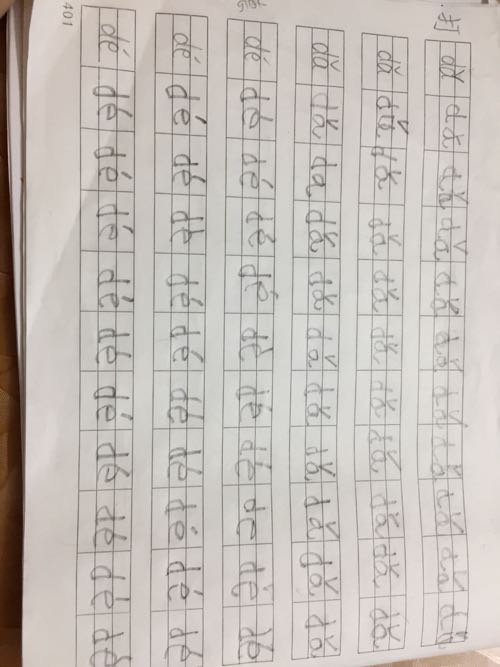 打
dǎ dǎ dǎ dǎ dǎ dǎ dǎ dǎ dǎ dǎ dǎ
dǎ dǎ dǎ dǎ dǎ dǎ dǎ dǎ dǎ dǎ dǎ
dǎ dǎ da dǎ dǎ dǎ dǎ dǎ dǎ dǎ dǎ
dé dé dé dé dé dé dé dé de dé dé
dé dé dé dé dé dé dé dé dé dé dé
dé dé dé dé dé dé dé dé dé dé dé
401